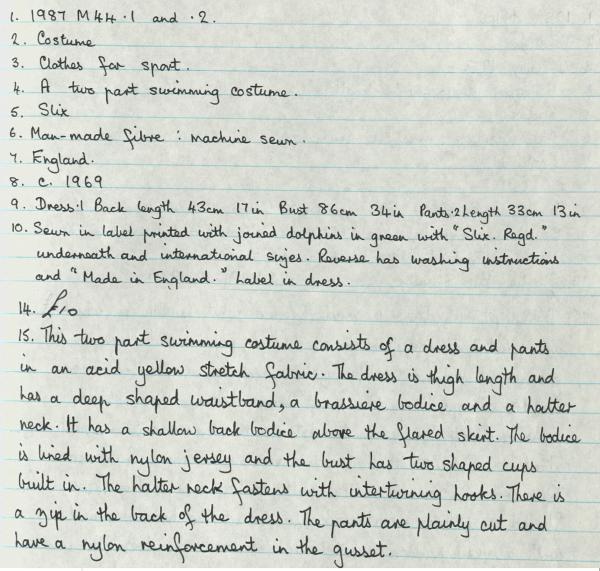 1. 1987 M44 .1 and .2.
2. Costume
3. Clothes for sport.
4. A two part swimming costume.
5. Slix
6. Man-made fibre : machine sewn.
7. England.
8. c. 1969
9. Dress.1 Back length 43cm 17in Bust 86cm 34in Pants.2 Length 33cm 13in
10. Sewn in label printed with joined dolphins in green with "Slix. Regd."
underneath and international sizes. Reverse has washing instructions
and "Made in England." Label in dress.
14. £10
15. This two part swimming costume consists of a dress and pants
in an acid yellow stretch fabric. The dress is thigh length and
has a deep shaped waistband, a brassiere bodice and a halter
neck. It has a shallow back bodice above the flared skirt. The bodice
is lined with nylon jersey and the bust has two shaped cups
built in. The halter neck fastens with intertwining hooks. There is
a zip in the back of the dress. The pants are plainly cut and
have a nylon reinforcement in the gusset.